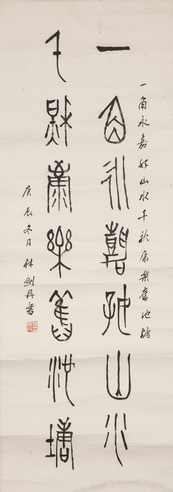 一角永嘉好山水千秋康樂舊池塘
一角永嘉好山水
千秋康樂舊池塘
庚辰冬日林劍丹書